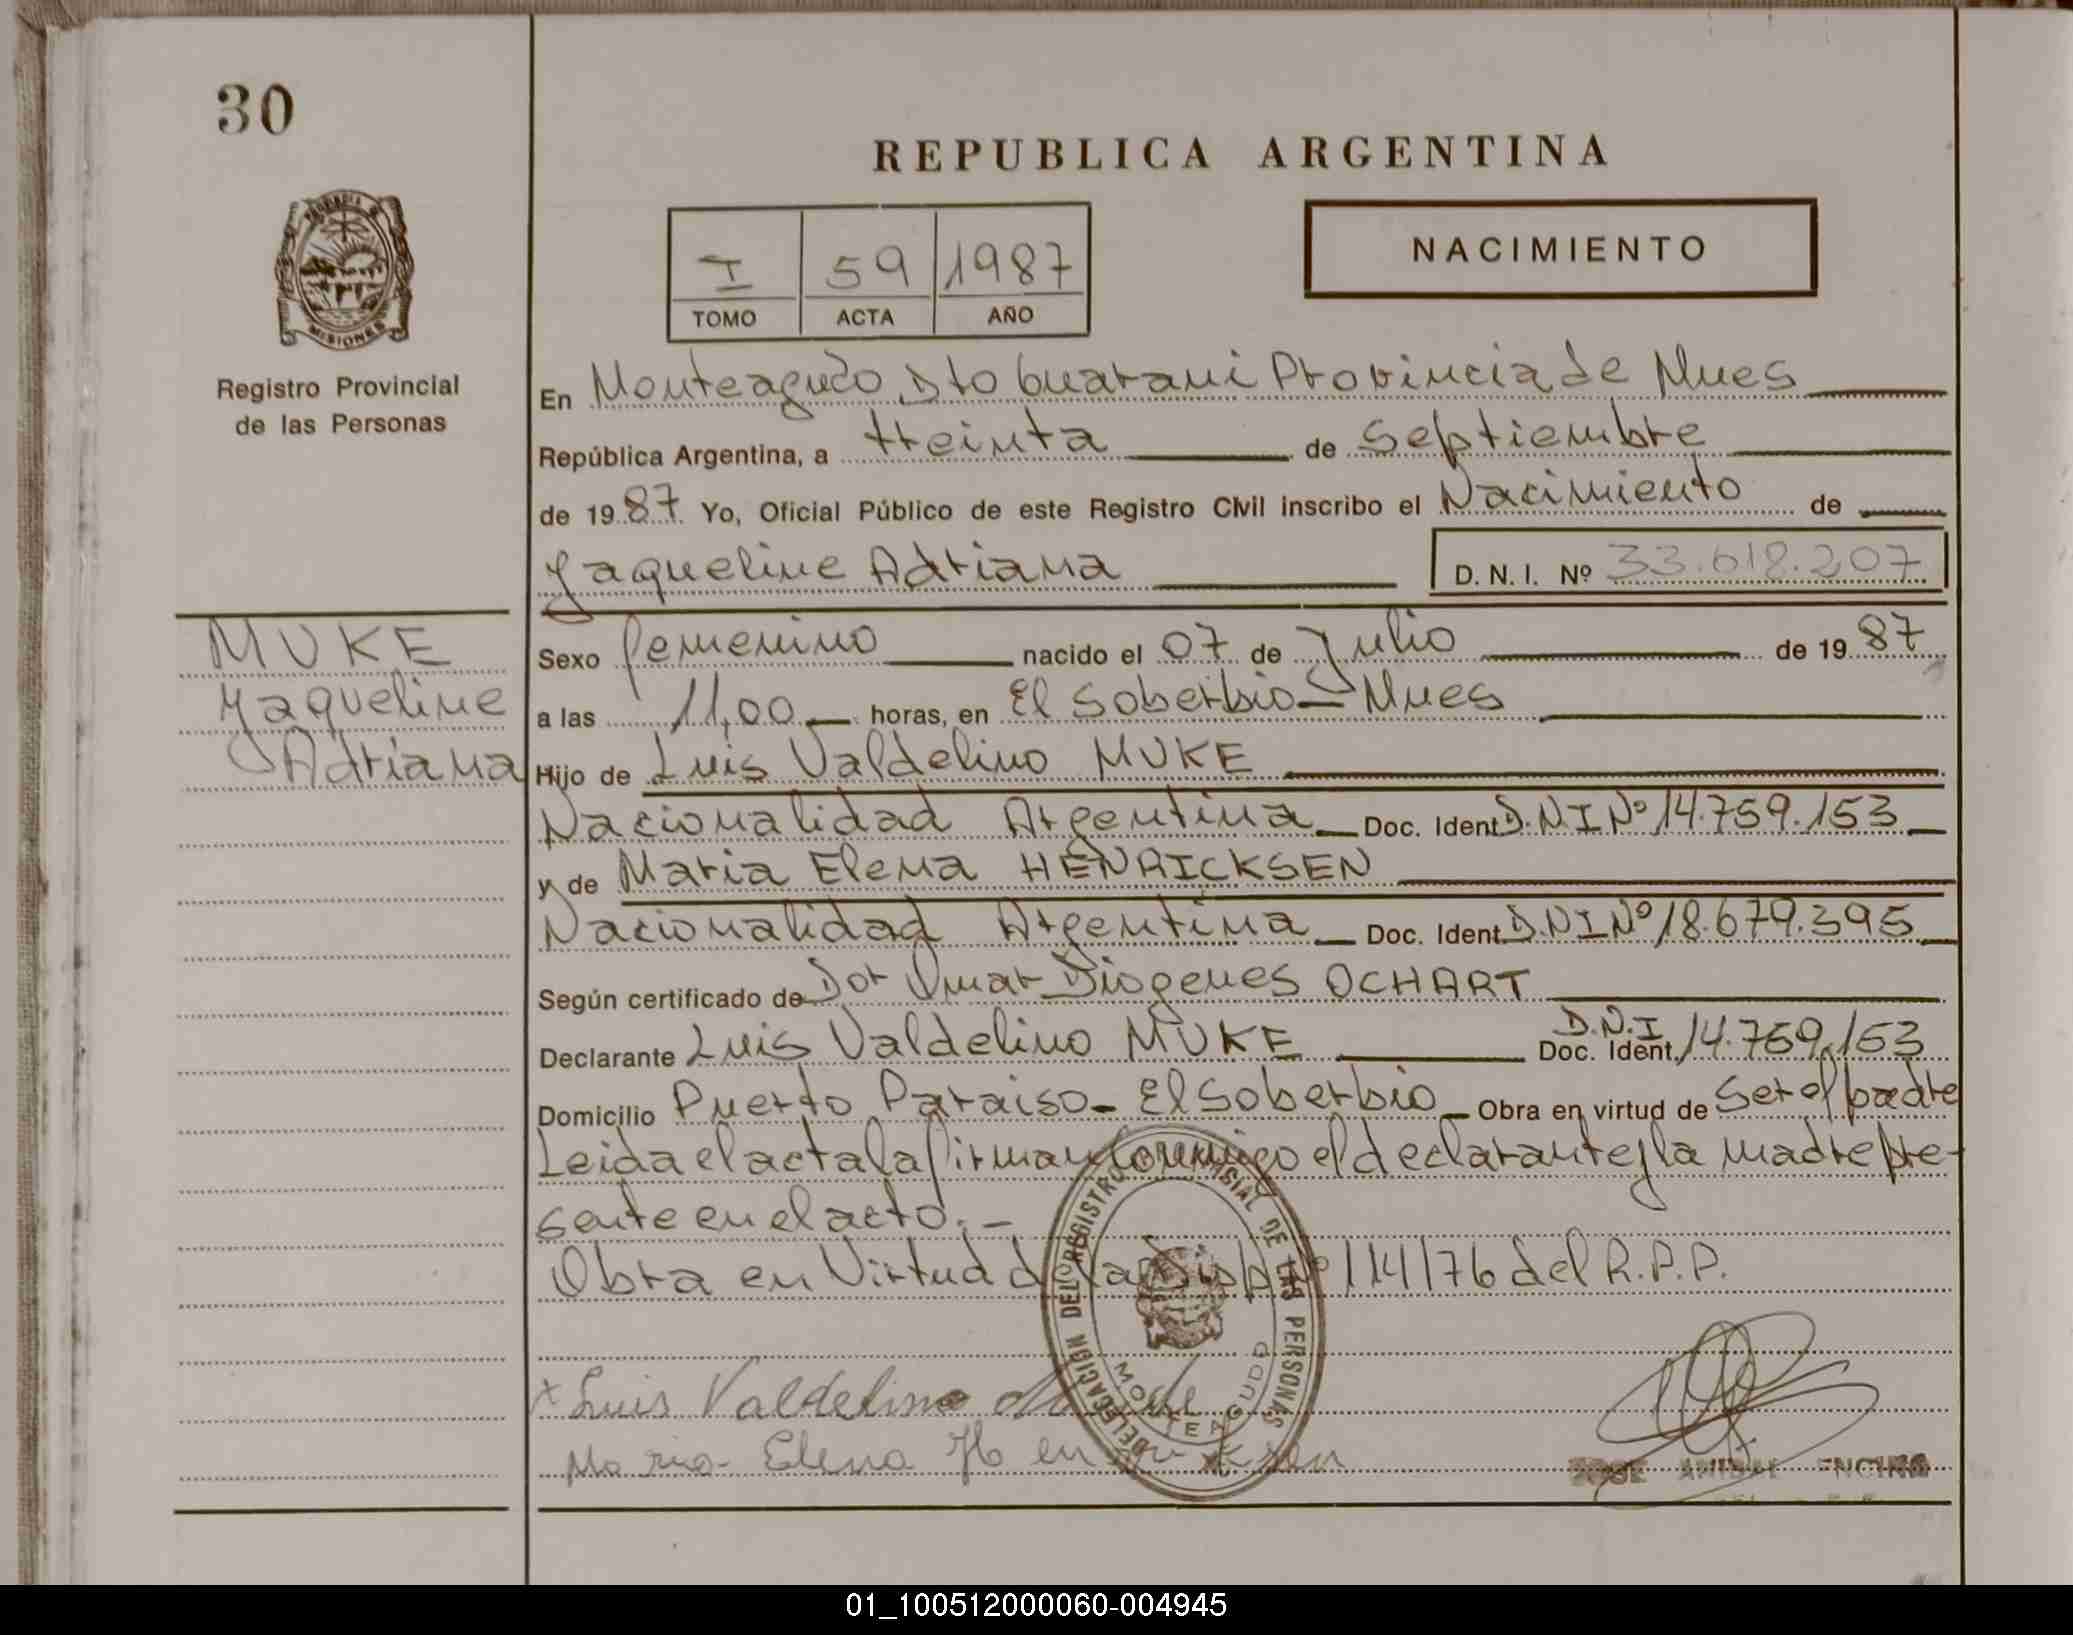 30
REPUBLICA ARGENTINA
NACIMIENTO
I 59 1987
TOMO ACTA AÑO
PROVINCIA DE
MISIONES
Registro Provincial
de las Personas
En Monteagudo Dto Guarani Provincia de Mnes
República Argentina, a treinta de Septiembre
de 1987 Yo, Oficial Público de este Registro Civil inscribo el Nacimiento de
Yaqueline Adriana D.N.I. Nº 33.618.207
MUKE
Yaqueline
Adriana
Sexo femenino nacido el 07 de Julio de 1987
a las 11,00 horas, en El Soberbio - Mnes
Hijo de Luis Valdelino MUKE
Nacionalidad Argentina Doc. Ident. D.N.I Nº 14.759.153
y de Maria Elena HENRICKSEN
Nacionalidad Argentina Doc. Ident. D.N.I Nº 18.679.395
Según certificado de Dor Omar Diogenes OCHART
Declarante Luis Valdelino MUKE Doc. Ident. D.N.I 14.759.153
Domicilio Puerto Paraiso - El Soberbio Obra en virtud de Ser el padre
Leida el acta la firman Conmigo el declarante y la madre pre-
sente en el acto. -
Obra en Virtud de la Disp Nº 114/76 del R.P.P.
DELEGACION DEL REGISTRO PROVINCIAL DE LAS PERSONAS
MONTEAGUDO
x Luis Valdelino Muke
Maria Elena Henricksen
JOSE ANIBAL ENCINA
01_100512000060-004945